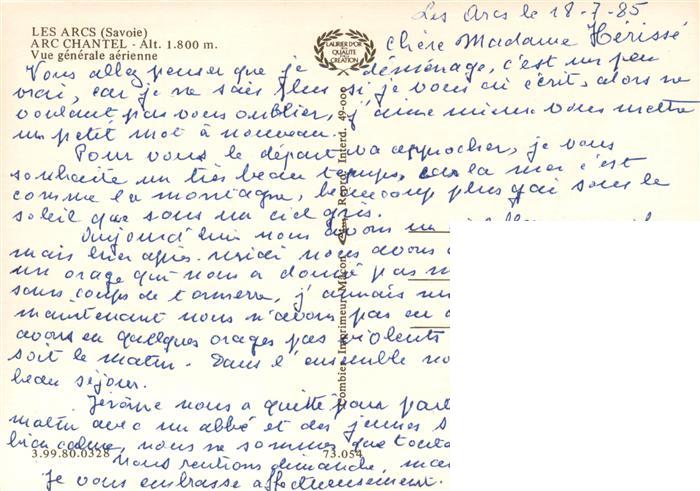 LES ARCS (Savoie)
ARC CHANTEL - Alt. 1.800 m.
Vue générale aérienne
LAURIER D'OR
QUALITÉ
CRÉATION
Les Arcs le 18-7-85
Chère Madame Hérissé
Vous allez penser que je déménage, c'est un peu
vrai, car je ne sais plus si je vous ai écrit, alors ne
voulant pas vous oublier, j'aime mieux vous mettre
un petit mot à nouveau.
Pour vous le départ va approcher, je vous
souhaite un très beau temps, car la mer c'est
comme la montagne, beaucoup plus gai sous le
soleil que sous un ciel gris.
Aujourd'hui nous avons un
mais hier après-midi nous avons
un orage qui nous a donné pas m
sans coups de tonnerre, j'aimais m
maintenant nous n'avons pas eu
avons eu quelques orages pas violents
soit le matin. Dans l'ensemble no
beau séjour.
Jérôme nous a quitté pour part
matin avec un abbé et des jeunes s
bien calme, nous ne sommes que
Nous rentrons dimanche,
Je vous embrasse affectueusement.
3.99.80.0328
73.054
Combier Imprimeur Mâcon
Repro. Interd. 49-000